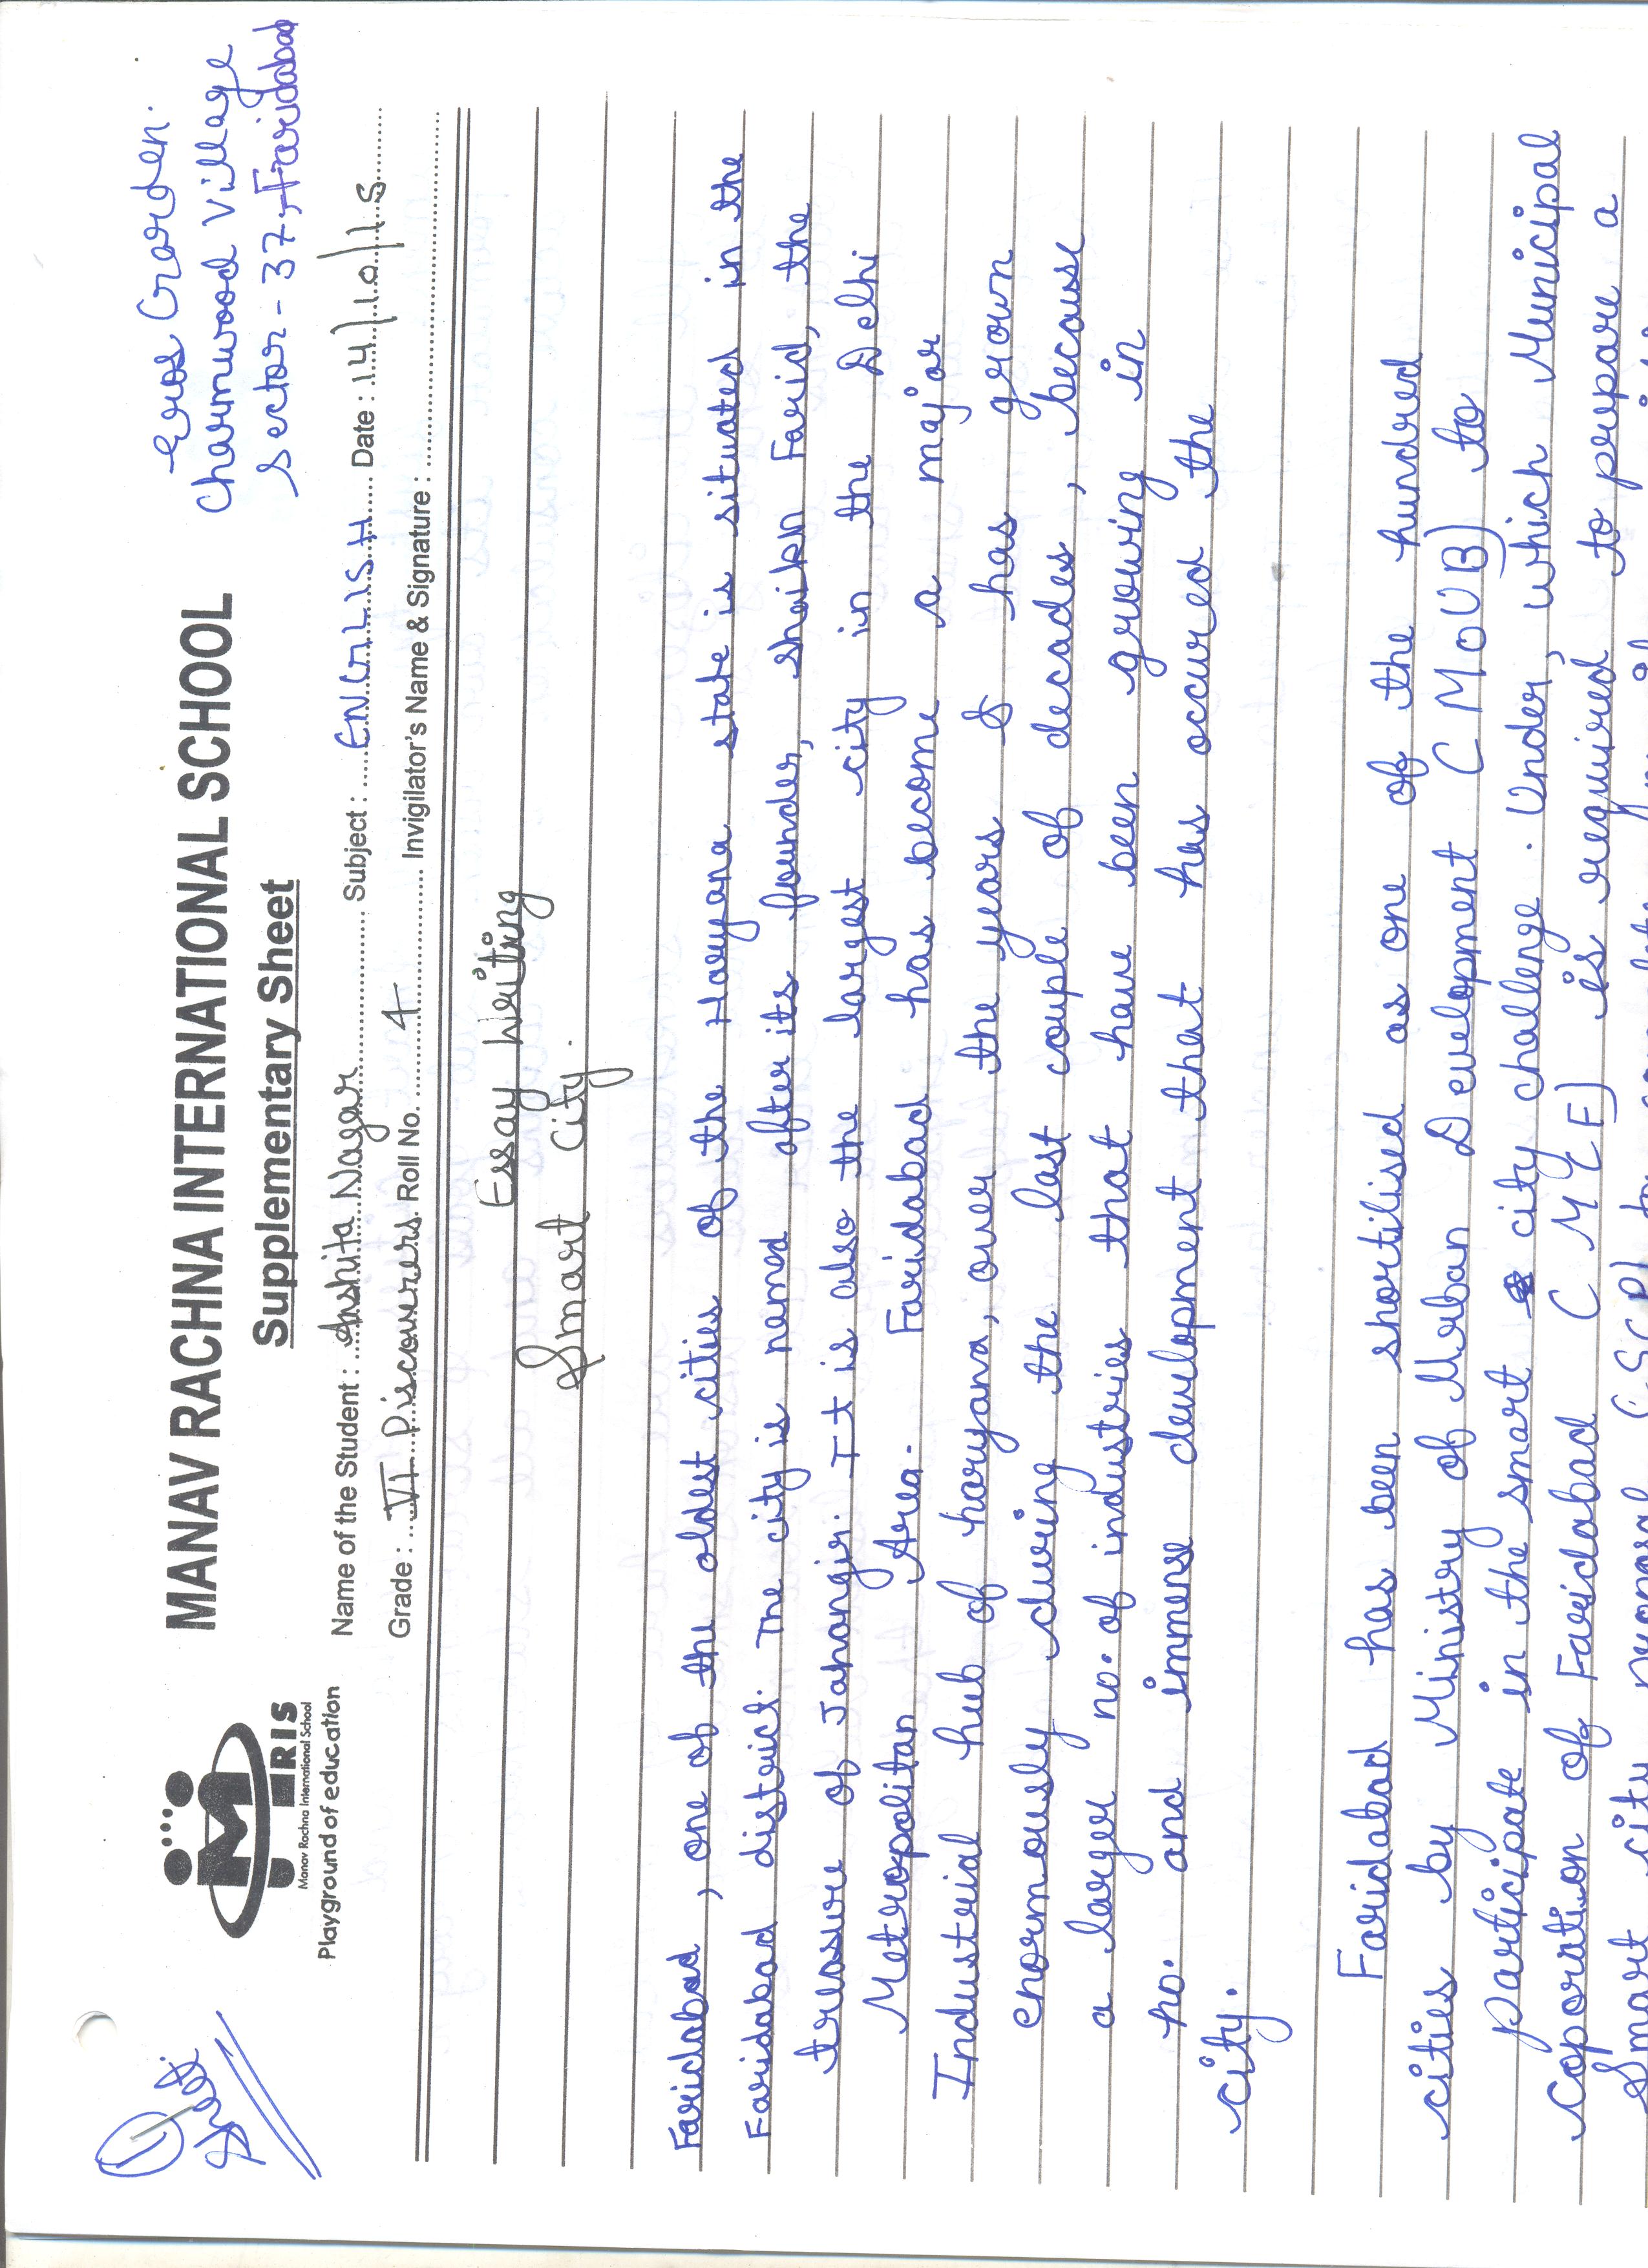 Eros Garden.
Charmwood Village
Sector - 37, Faridabad
MANAV RACHNA INTERNATIONAL SCHOOL
Supplementary Sheet
MRIS
Manav Rachna International School
Playground of education
Name of the Student : Anshita Nagar Subject : ENGLISH Date : 14/10/15
Grade : VI Discoverers Roll No. 4 Invigilator's Name & Signature :
Essay Writing
Smart City.
Faridabad, one of the oldest cities of the Haryana state is situated in the
Faridabad district. The city is named after its founder, shaikh Farid, the
treasure of Jahangir. It is also the largest city in the Delhi
Metropolitan Area. Faridabad has become a major
Industrial hub of haryana, over the years & has grown
enormously during the last couple of decades, because
a larger no. of industries that have been growing in
no. and immense development that has occured the
city.
Faridabad has been shortilised as one of the hundred
cities by Ministry of Urban Development ( MOUB) to
participate in the smart city challenge. Under, which Municipal
Coporation of Faridabad ( MCF) is required to prepare a
Smart city proposal (SCP)